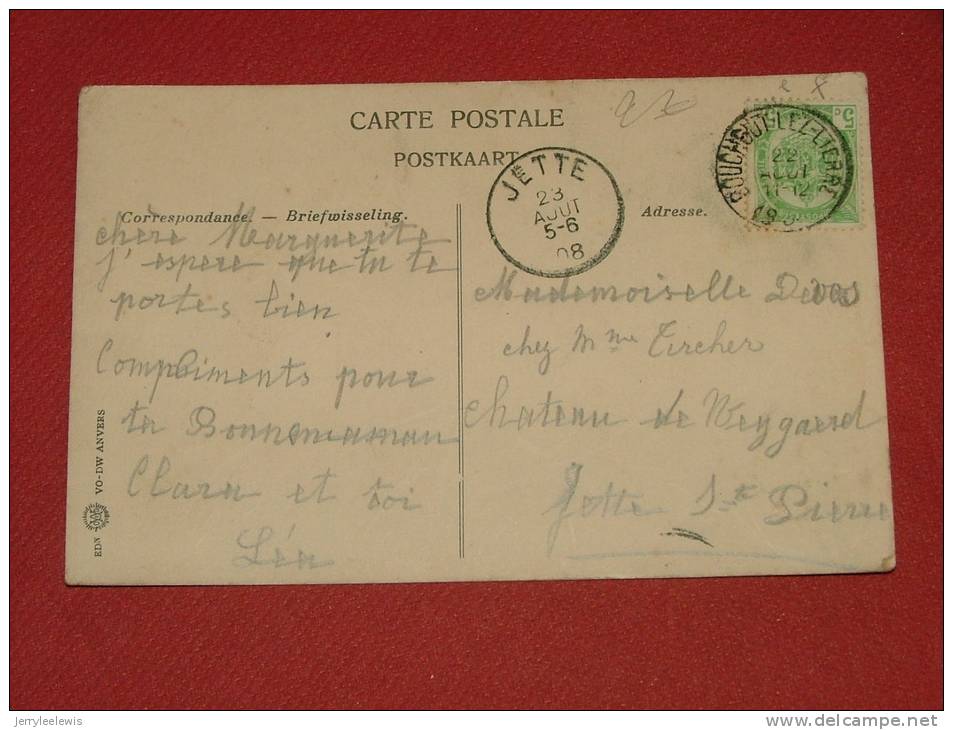 CARTE POSTALE
POSTKAART
JETTE
23
AOUT
5-6
08
BOUCHOUT-LEZ-LIERRE
22
AOUT
11-12
5c
Correspondance. — Briefwisseling.
Adresse.
chère Marguerite
j'espere que tu te
portes bien
Compliments pour
ta Bonnemaman
Clara et toi
Léa
Mademoiselle
chez Mme Tircher
Chateau de Weygaerd
Jette Ste Pierre
EDN VO-DW ANVERS
jerryleelewis
www.delcampe.net